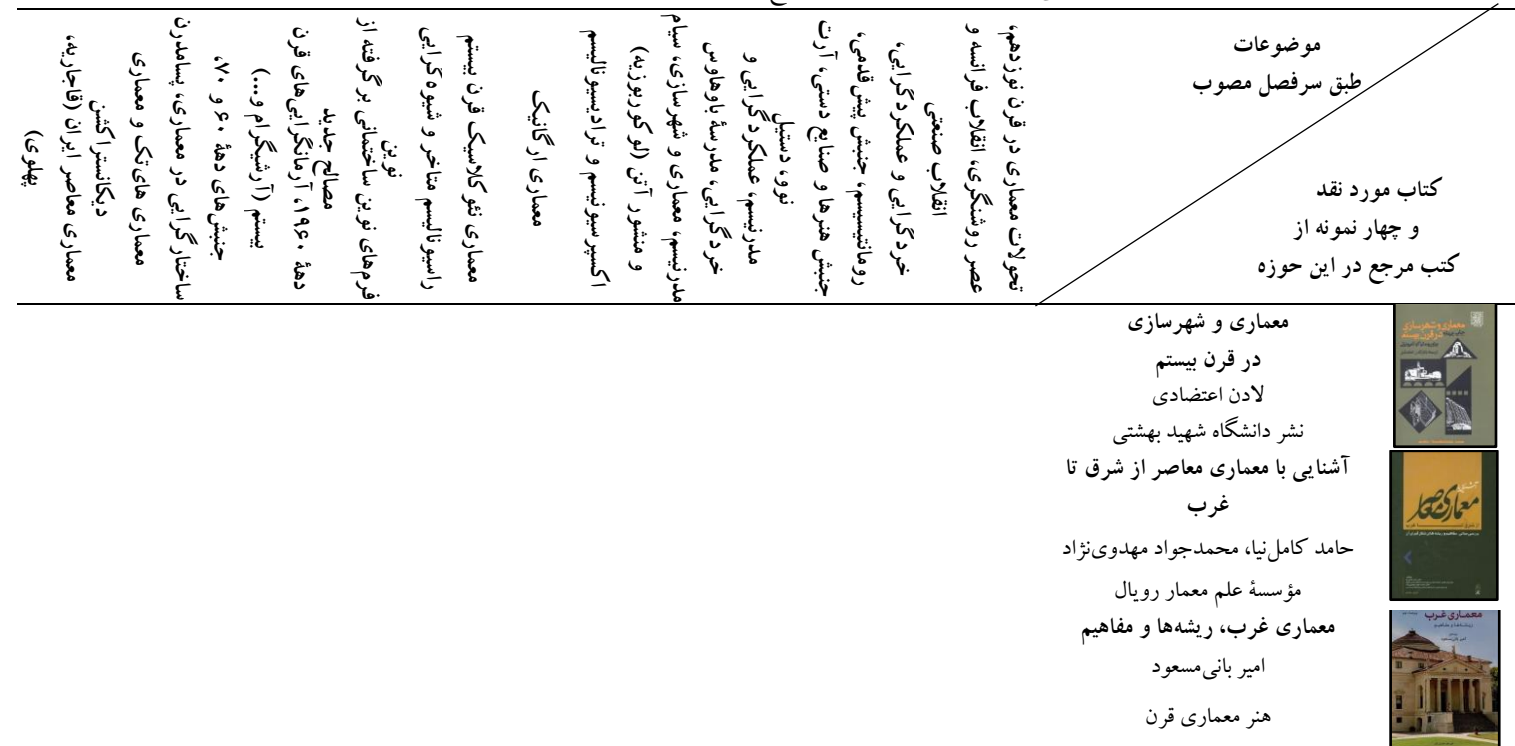 موضوعات
طبق سرفصل مصوب
کتاب مورد نقد
و چهار نمونه از
کتب مرجع در این حوزه
تحولات معماری در قرن نوزدهم،
عصر روشنگری، انقلاب فرانسه و
انقلاب صنعتی
خردگرایی و عملکردگرایی،
رومانتیسیسم، جنبش پیش‌قدمی،
جنبش هنرها و صنایع دستی، آرت
نوو، دستیل
مدرنیسم، عملکردگرایی و
خردگرایی، مدرسهٔ باوهاوس
مدرنیسم، معماری و شهرسازی، سیام
و منشور آتن (لوکوربوزیه)
اکسپرسیونیسم و ترادیسیونالیسم
معماری ارگانیک
معماری نئوکلاسیک قرن بیستم
راسیونالیسم متاخر و شیوه‌گرایی
نوین
فرم‌های نوین ساختمانی برگرفته از
مصالح جدید
دههٔ ۱۹۶۰، آرمانگرایی‌های قرن
بیستم (آرشیگرام و....)
جنبش‌های دههٔ ۶۰ و ۷۰،
ساختارگرایی در معماری، پسامدرن
معماری های‌تک و معماری
دیکانستراکشن
معماری معاصر ایران (قاجاریه،
پهلوی)
معماری و شهرسازی
در قرن بیستم
لادن اعتضادی
نشر دانشگاه شهید بهشتی
آشنایی با معماری معاصر از شرق تا
غرب
حامد کامل‌نیا، محمدجواد مهدوی‌نژاد
مؤسسهٔ علم معمار رویال
معماری غرب، ریشه‌ها و مفاهیم
امیر بانی‌مسعود
هنر معماری قرن
معماری و شهرسازی
در قرن بیستم
معماری معاصر
معماری غرب
ریشه‌ها و مفاهیم